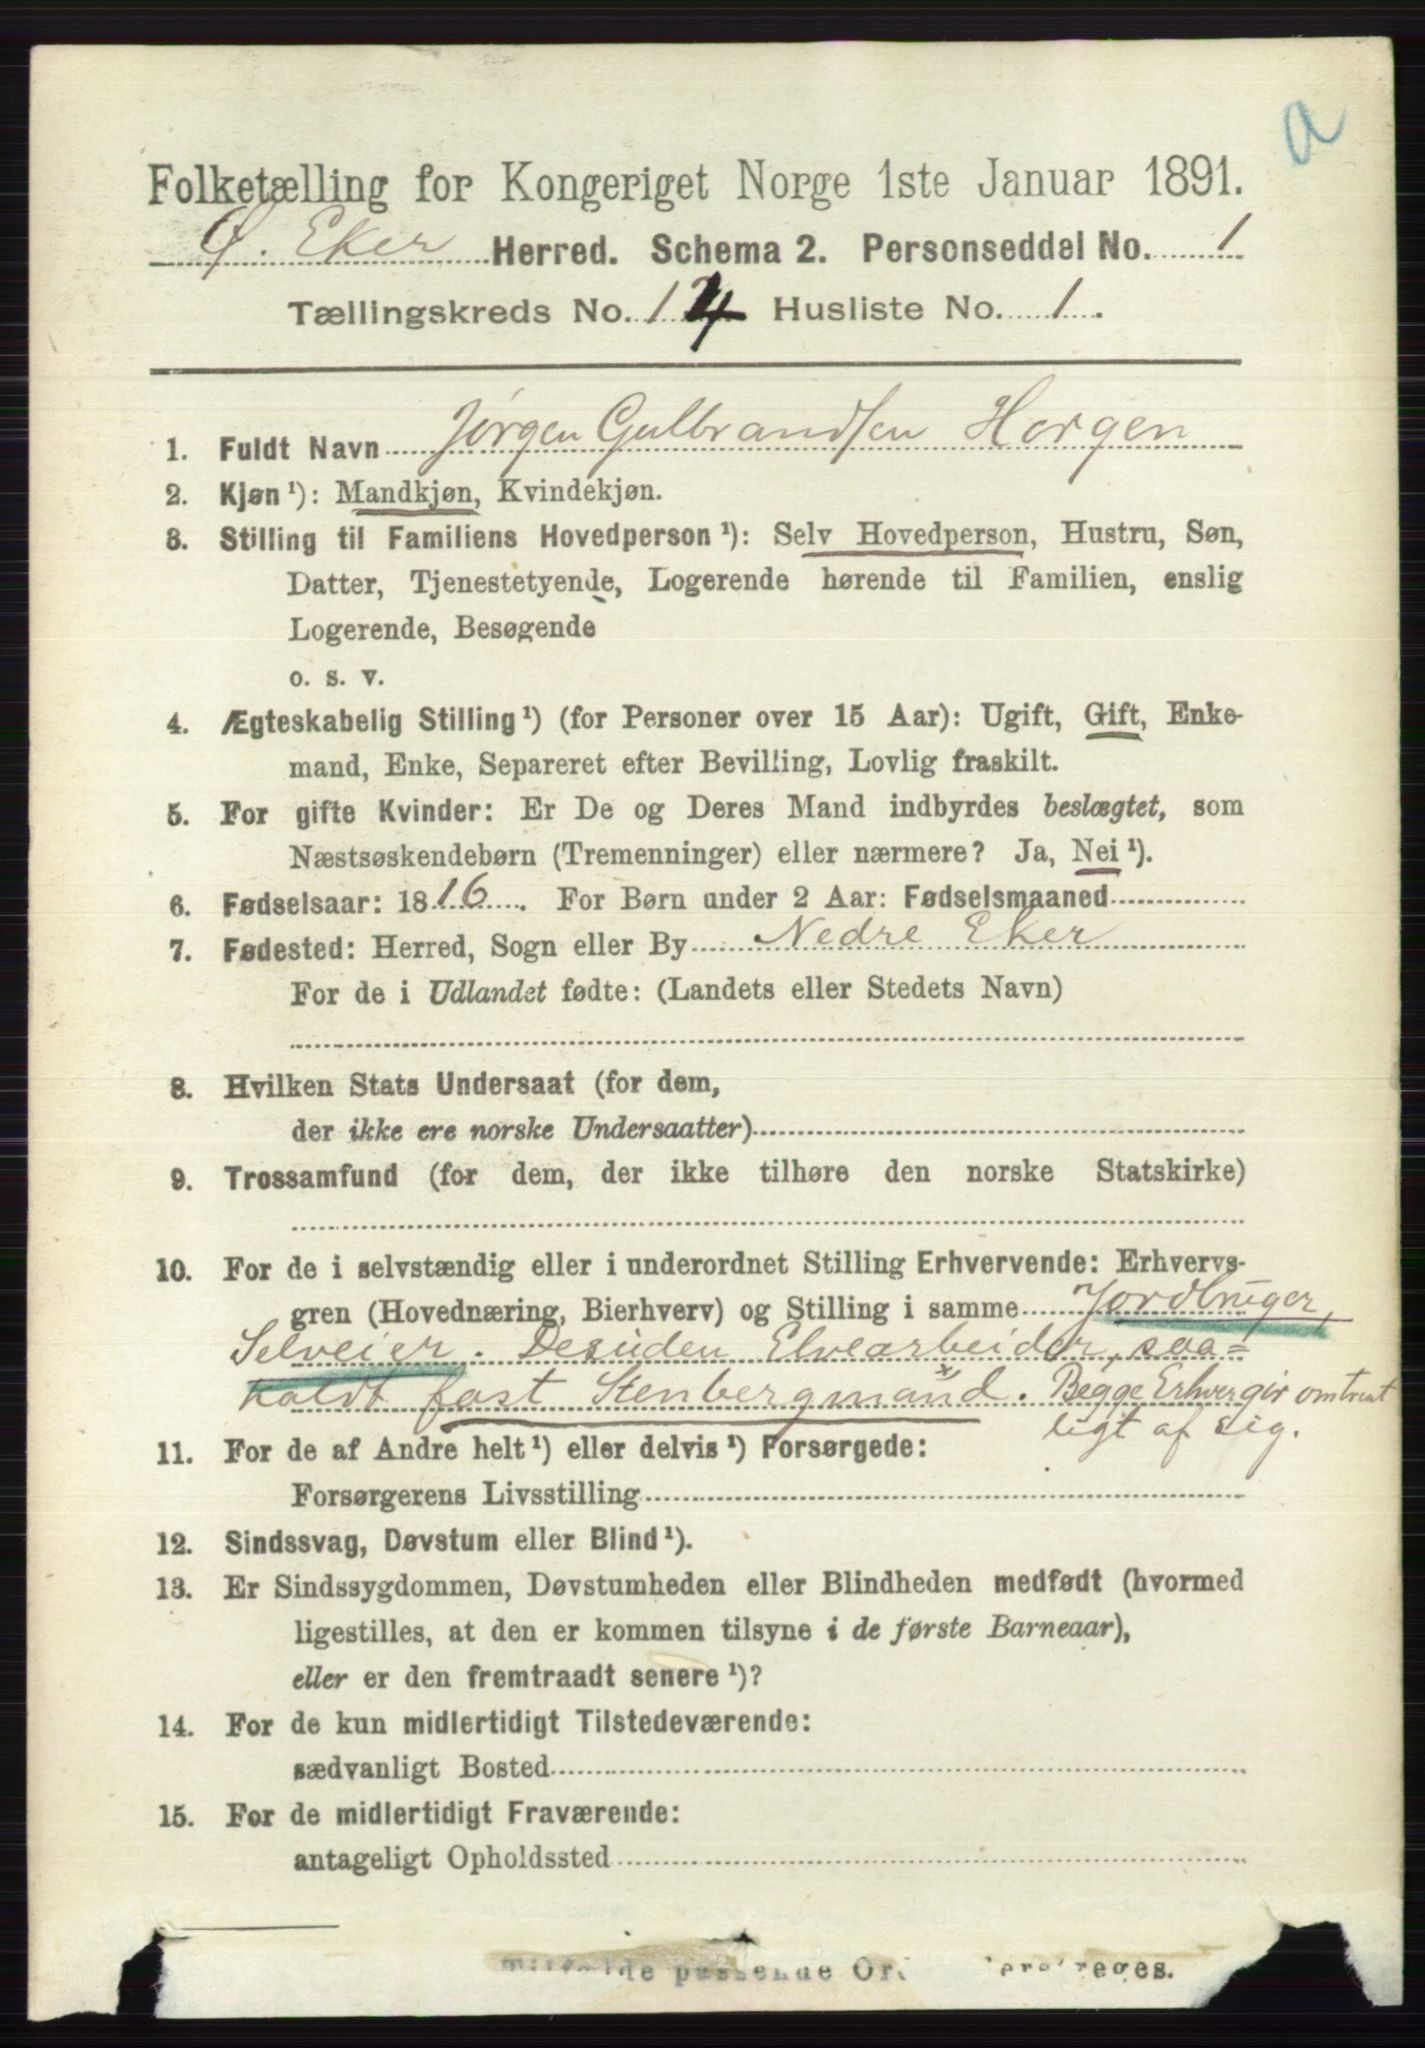 a
Folketælling for Kongeriget Norge 1ste Januar 1891.
Ø. Eker Herred. Schema 2. Personseddel No. 1
Tællingskreds No. 14 Husliste No. 1.
1. Fuldt Navn Jørgen Gulbrandsen Horgen
2. Kjøn¹): Mandkjøn, Kvindekjøn.
3. Stilling til Familiens Hovedperson¹): Selv Hovedperson, Hustru, Søn,
Datter, Tjenestetyende, Logerende hørende til Familien, enslig
Logerende, Besøgende
o. s. v.
4. Ægteskabelig Stilling¹) (for Personer over 15 Aar): Ugift, Gift, Enke-
mand, Enke, Separeret efter Bevilling, Lovlig fraskilt.
5. For gifte Kvinder: Er De og Deres Mand indbyrdes beslægtet, som
Næstsøskendebørn (Tremenninger) eller nærmere? Ja, Nei¹).
6. Fødselsaar: 1816. For Børn under 2 Aar: Fødselsmaaned
7. Fødested: Herred, Sogn eller By Nedre Eker
For de i Udlandet fødte: (Landets eller Stedets Navn)
8. Hvilken Stats Undersaat (for dem,
der ikke ere norske Undersaatter)
9. Trossamfund (for dem, der ikke tilhøre den norske Statskirke)
10. For de i selvstændig eller i underordnet Stilling Erhvervende: Erhvervs-
gren (Hovednæring, Bierhverv) og Stilling i samme Jordbruger,
Selveier. Desuden Elvearbeider, saa=
kaldt fast Stenbergmand. Begge Erhver gir omtrent
ligt af sig.
11. For de af Andre helt¹) eller delvis¹) Forsørgede:
Forsørgerens Livsstilling
12. Sindssvag, Døvstum eller Blind¹).
13. Er Sindssygdommen, Døvstumheden eller Blindheden medfødt (hvormed
ligestilles, at den er kommen tilsyne i de første Barneaar),
eller er den fremtraadt senere¹)?
14. For de kun midlertidigt Tilstedeværende:
sædvanligt Bosted
15. For de midlertidigt Fraværende:
antageligt Opholdssted
passende